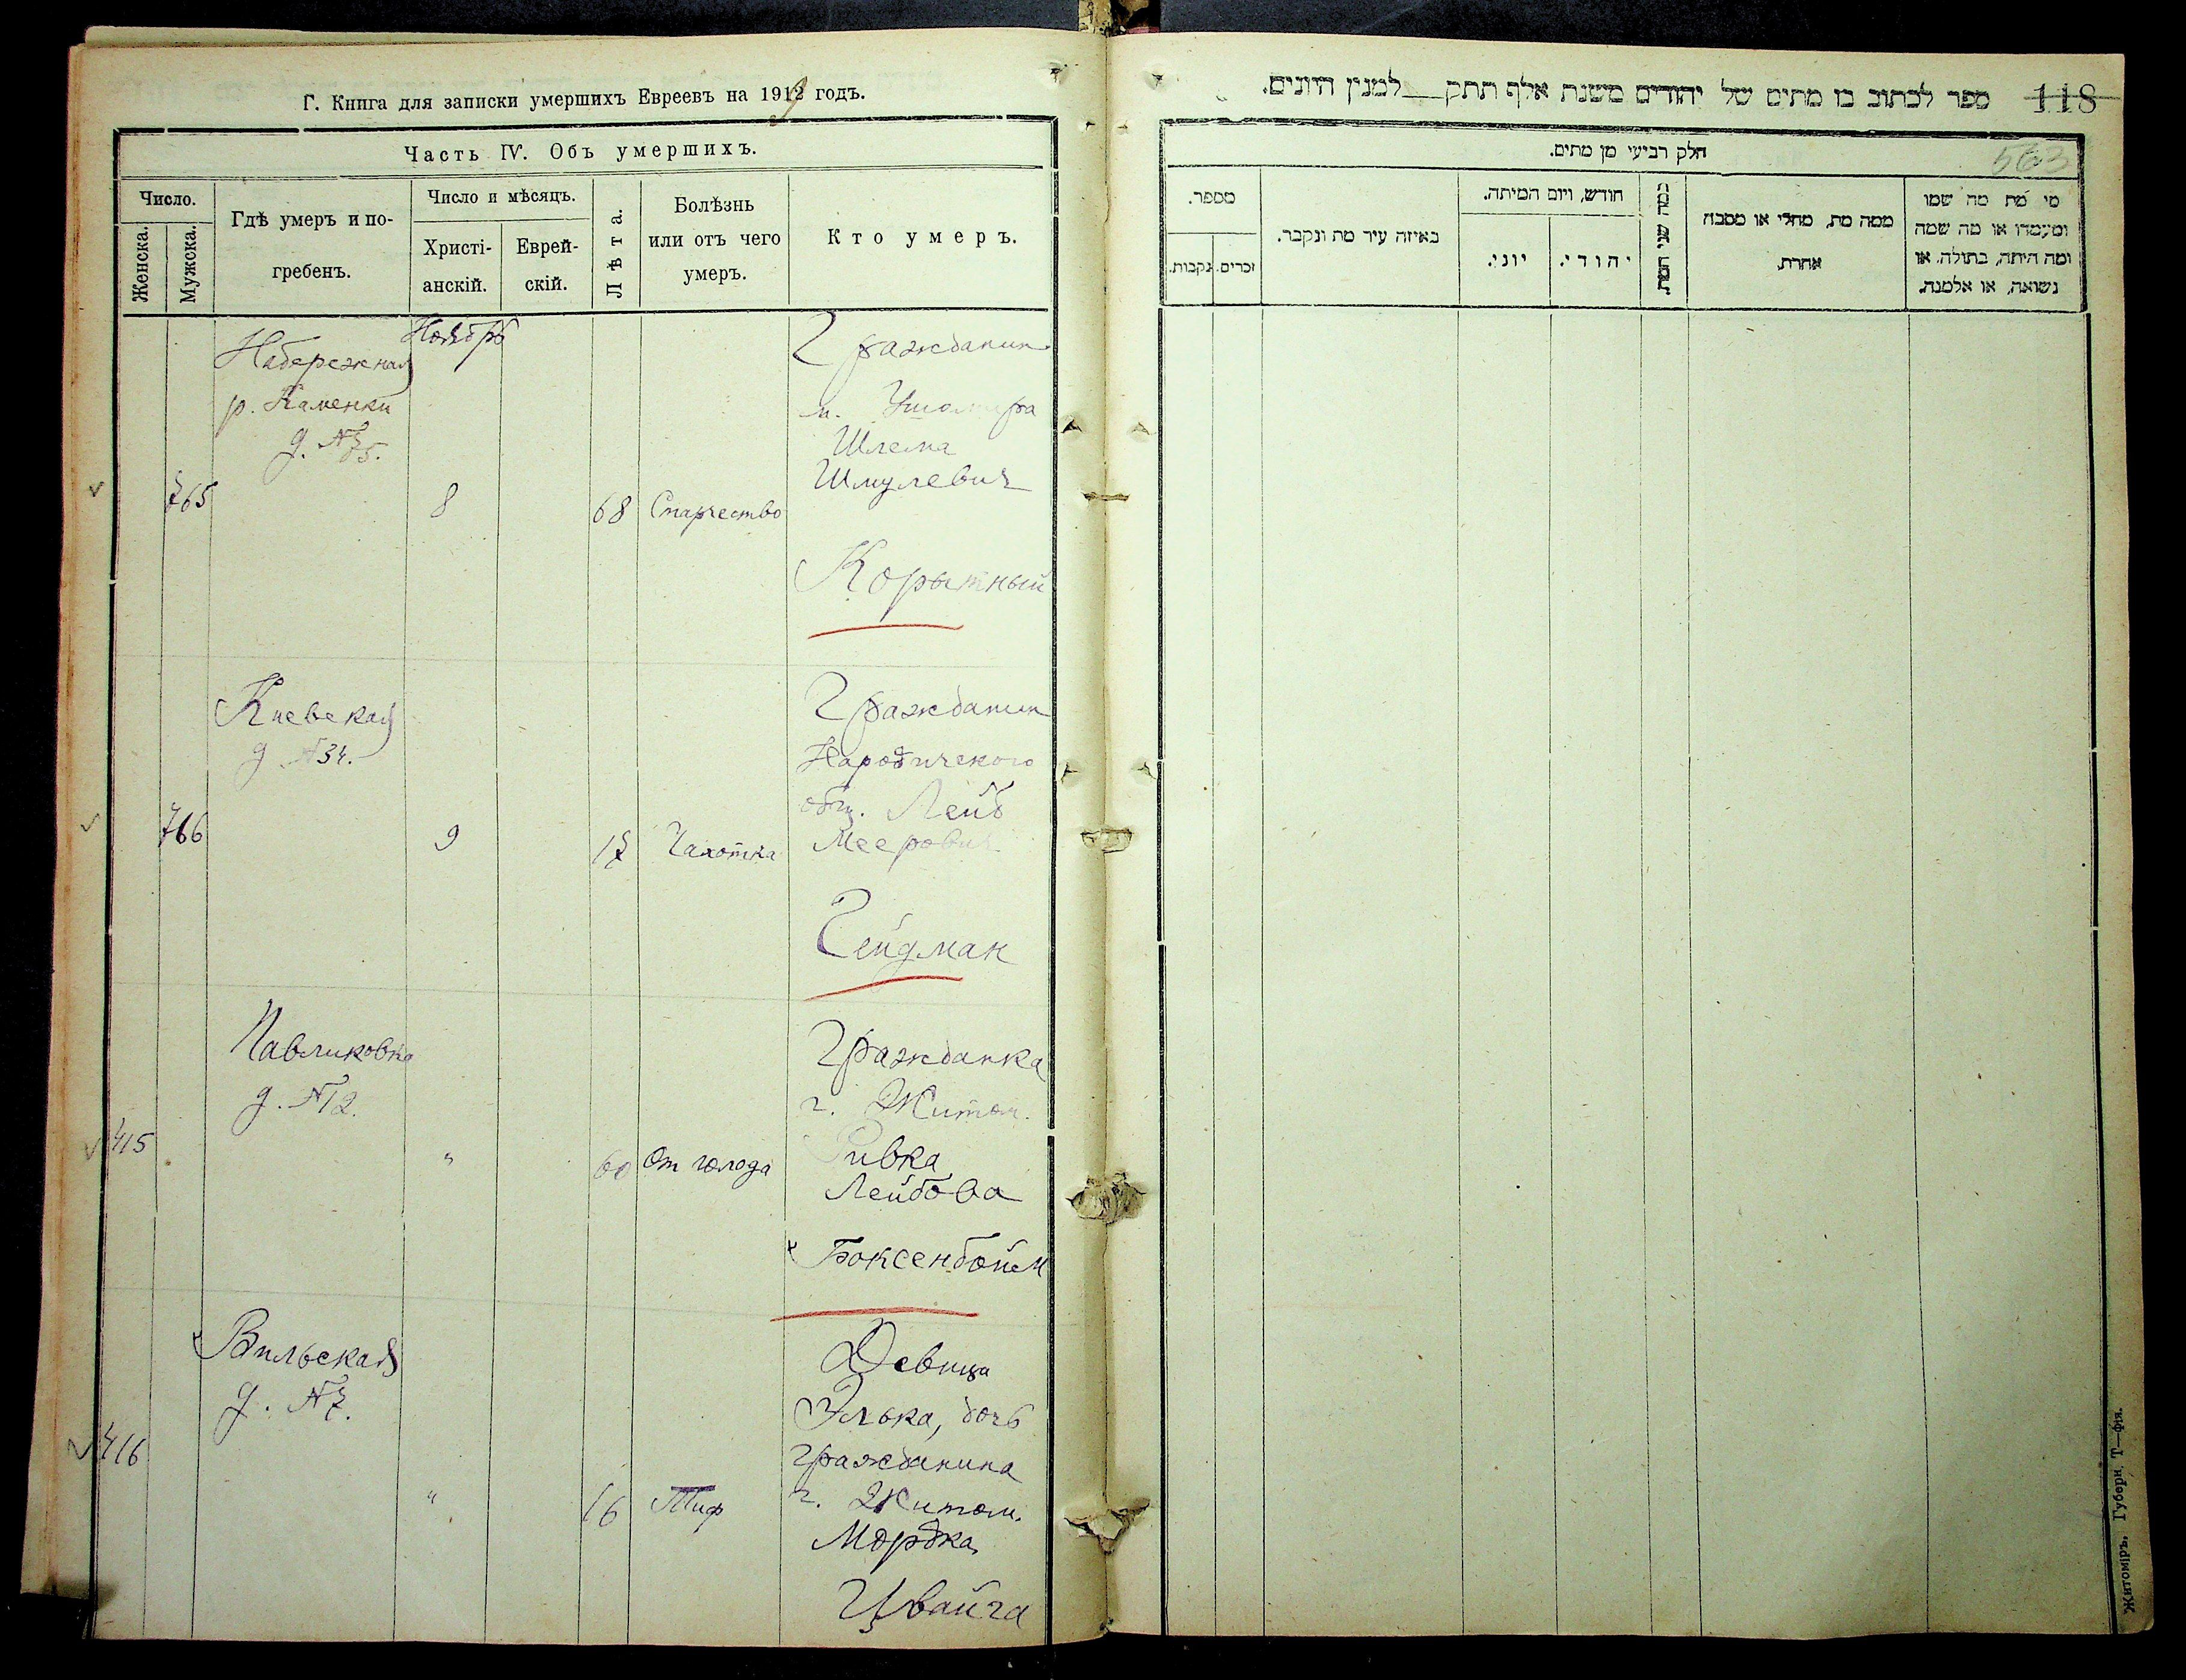 Г. Книга для записки умершихъ Евреевъ на 1919 годъ.
Часть IV. Объ умершихъ.
Число.
Женска.
Мужска.
Гдѣ умеръ и по-
гребенъ.
Число и мѣсяцъ.
Христі-
анскій.
Еврей-
скій.
Лѣта.
Болѣзнь
или отъ чего
умеръ.
Кто умеръ.
Ноябрь
Набережная
р. Каменки
д. №75.
765
8
68
Старчество
Гражданин
м. Ушомира
Шлема
Шмулевич
Корытный
Киевская
д №34.
766
9
17
Чахотка
Гражданин
Народичского
общ. Лейб
Меерович
Гейдман
Павликовка
д. №12.
415
"
60
От голода
Гражданка
г. Житом.
Ривка
Лейбова
Боксенбойм
Вильская
д. №7.
416
"
16
Тиф
Девица
Элька, дочь
гражданина
г. Житом.
Мордка
Цвайга
ספר לכתוב בו מתים של יהודים משנת אלף תתק__למנין היונים.
118
563
חלק רביעי מן מתים.
מספר.
נקבות.
זכרים.
באיזה עיר מת ונקבר.
חודש, ויום המיתה.
יוני.
יהודי.
כמה שני המת.
ממה מת, מחלי או מסבה
אחרת.
מי מת מה שמו
ומעמדו או מה שמה
ומה היתה, בתולה, או
נשואה, או אלמנה.
Житомiръ, Губерн. Т—фiя.